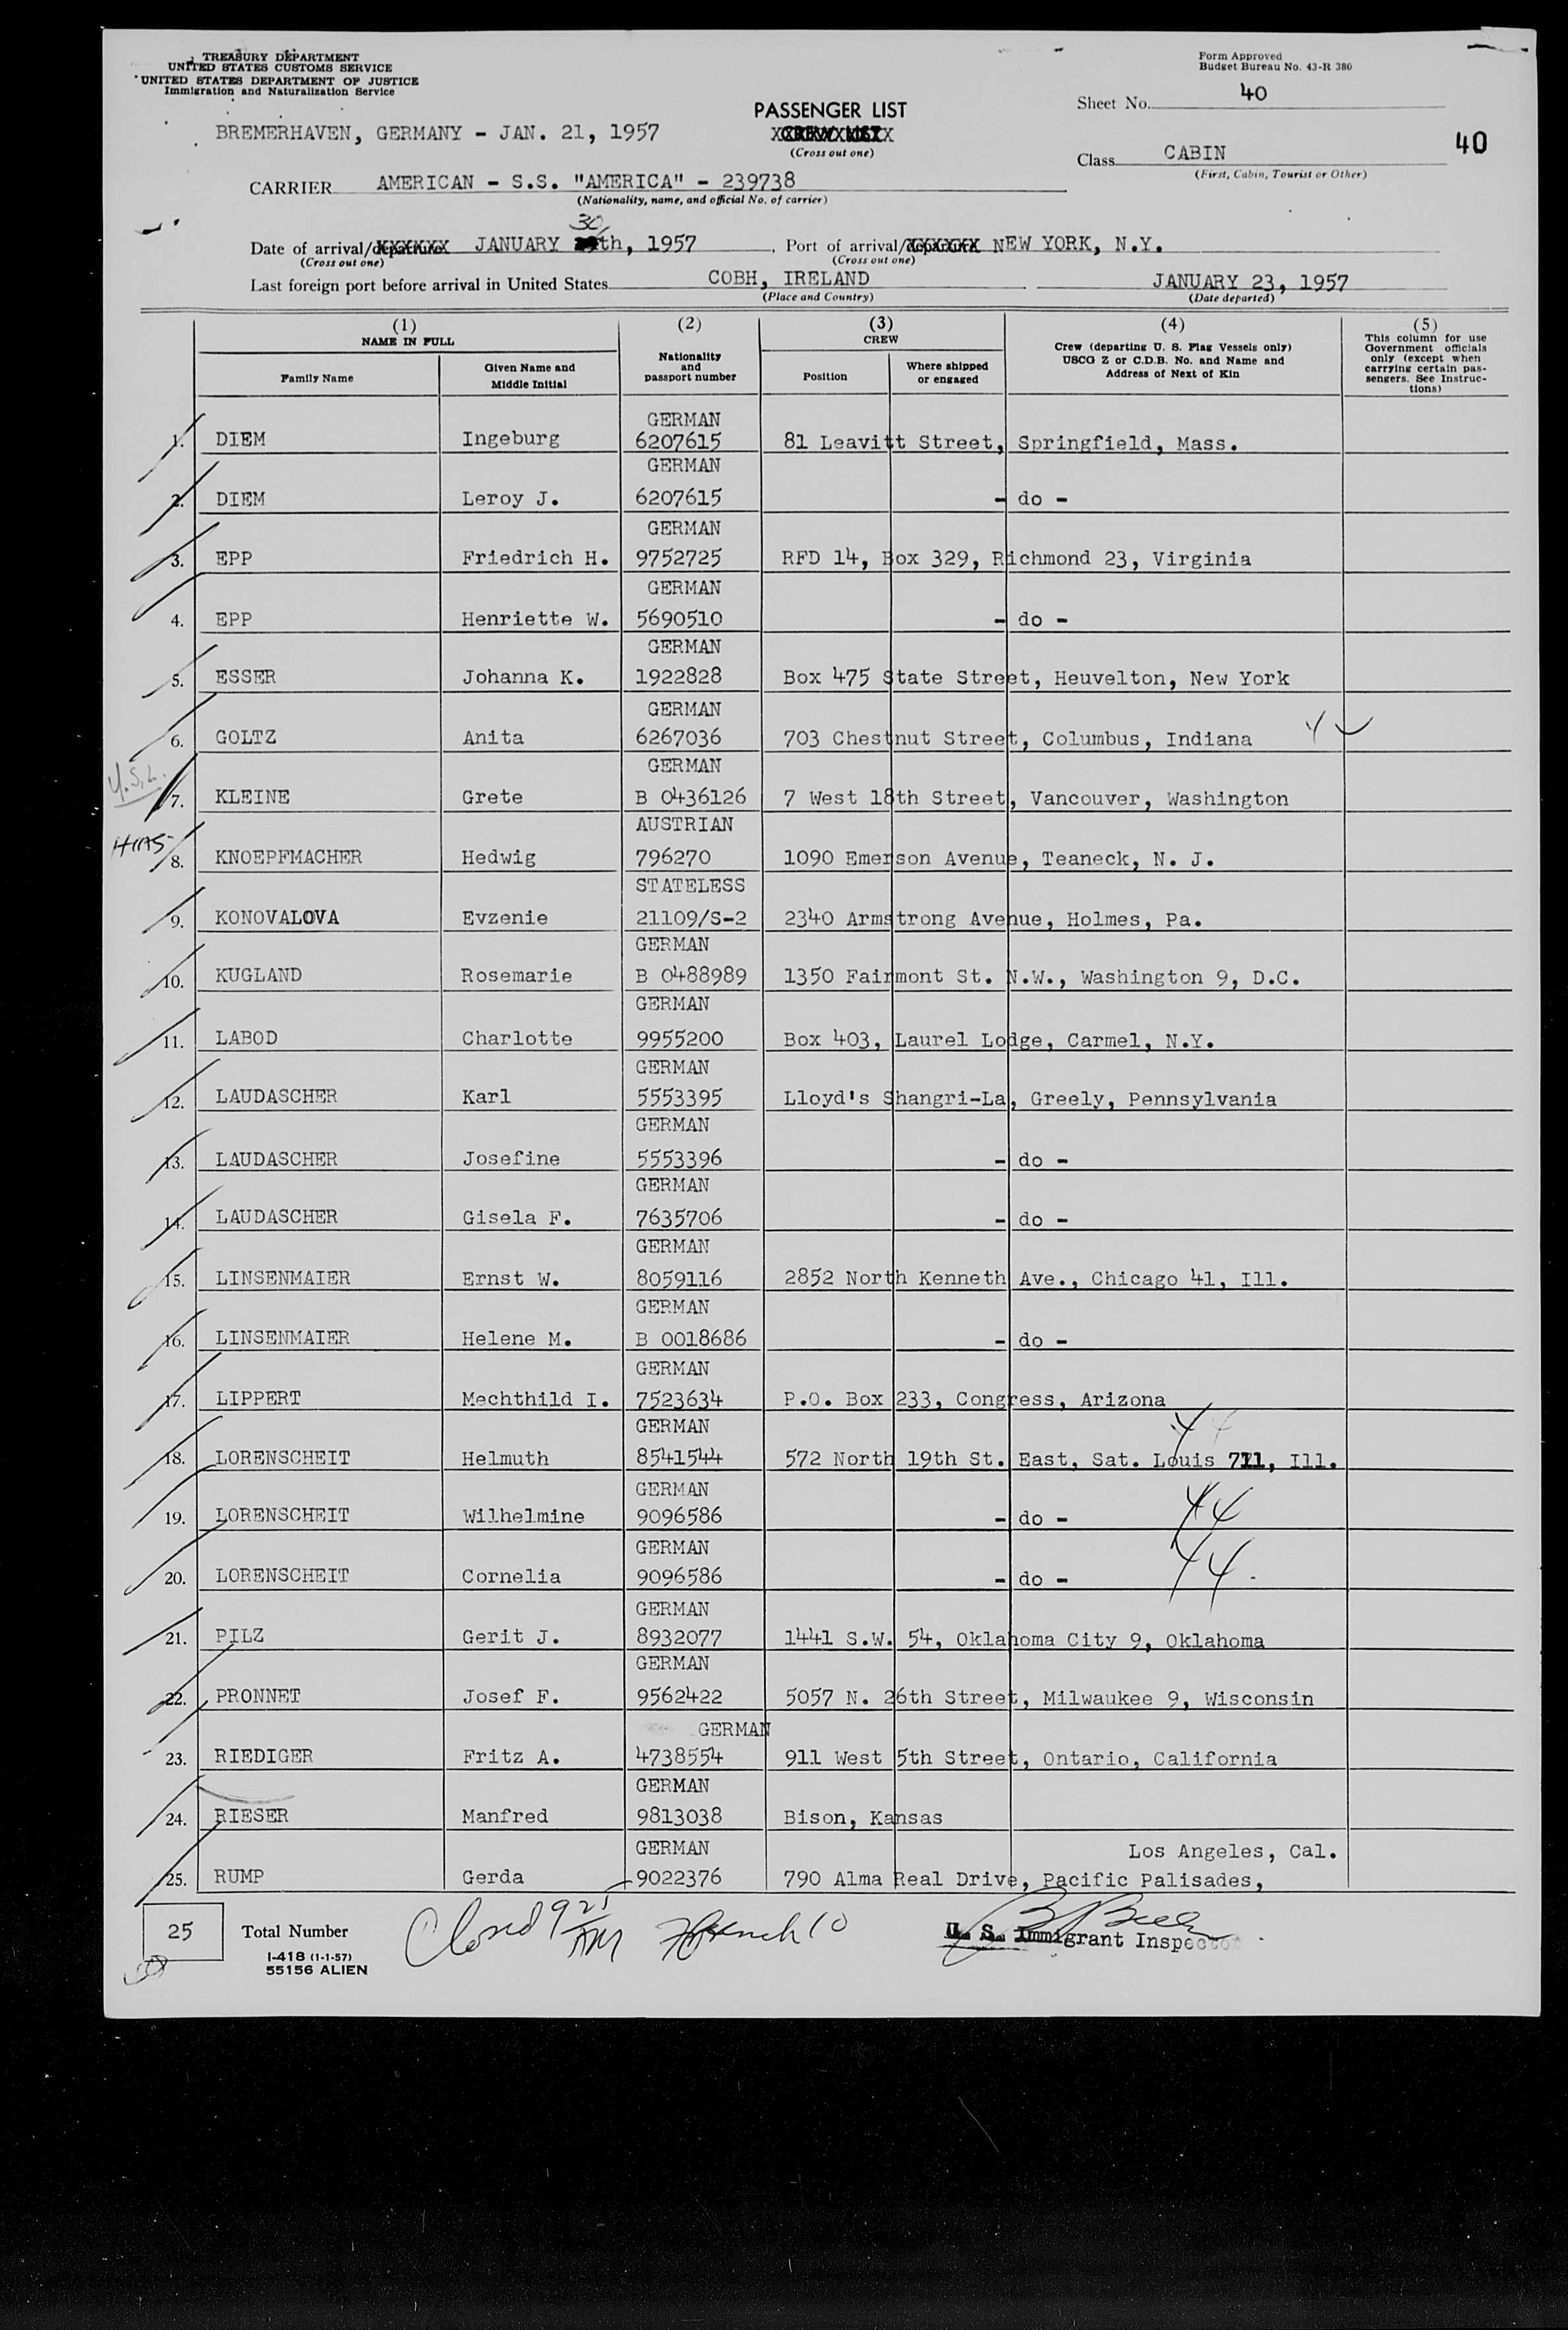 TREASURY DEPARTMENT
UNITED STATES CUSTOMS SERVICE
UNITED STATES DEPARTMENT OF JUSTICE
Immigration and Naturalization Service
Form Approved
Budget Bureau No. 43-R 380
Sheet No. 40
PASSENGER LIST
CREW LIST
(Cross out one)
BREMERHAVEN, GERMANY - JAN. 21, 1957
Class CABIN
40
(First, Cabin, Tourist or Other)
CARRIER AMERICAN - S.S. "AMERICA" - 239738
(Nationality, name, and official No. of carrier)
30
Date of arrival/departure JANUARY th, 1957, Port of arrival/departure NEW YORK, N.Y.
(Cross out one) (Cross out one)
Last foreign port before arrival in United States COBH, IRELAND JANUARY 23, 1957
(Place and Country) (Date departed)
(1) NAME IN FULL
Family Name
Given Name and Middle Initial
(2) Nationality and passport number
(3) CREW
Position
Where shipped or engaged
(4) Crew (departing U. S. Flag Vessels only) USCG Z or C.D.B. No. and Name and Address of Next of Kin
(5) This column for use Government officials only (except when carrying certain passengers. See Instructions)
GERMAN
1. DIEM Ingeburg 6207615 81 Leavitt Street, Springfield, Mass.
GERMAN
2. DIEM Leroy J. 6207615 - do -
GERMAN
3. EPP Friedrich H. 9752725 RFD 14, Box 329, Richmond 23, Virginia
GERMAN
4. EPP Henriette W. 5690510 - do -
GERMAN
5. ESSER Johanna K. 1922828 Box 475 State Street, Heuvelton, New York
GERMAN
6. GOLTZ Anita 6267036 703 Chestnut Street, Columbus, Indiana
GERMAN
7. KLEINE Grete B 0436126 7 West 18th Street, Vancouver, Washington
AUSTRIAN
HIAS
8. KNOEPFMACHER Hedwig 796270 1090 Emerson Avenue, Teaneck, N. J.
STATELESS
9. KONOVALOVA Evzenie 21109/S-2 2340 Armstrong Avenue, Holmes, Pa.
GERMAN
10. KUGLAND Rosemarie B 0488989 1350 Fairmont St. N.W., Washington 9, D.C.
GERMAN
11. LABOD Charlotte 9955200 Box 403, Laurel Lodge, Carmel, N.Y.
GERMAN
12. LAUDASCHER Karl 5553395 Lloyd's Shangri-La, Greely, Pennsylvania
GERMAN
13. LAUDASCHER Josefine 5553396 - do -
GERMAN
14. LAUDASCHER Gisela F. 7635706 - do -
GERMAN
15. LINSENMAIER Ernst W. 8059116 2852 North Kenneth Ave., Chicago 41, Ill.
GERMAN
16. LINSENMAIER Helene M. B 0018686 - do -
GERMAN
17. LIPPERT Mechthild I. 7523634 P.O. Box 233, Congress, Arizona
GERMAN
18. LORENSCHEIT Helmuth 8541544 572 North 19th St. East, Sat. Louis 711, Ill.
GERMAN
19. LORENSCHEIT Wilhelmine 9096586 - do - 44
GERMAN
20. LORENSCHEIT Cornelia 9096586 - do - 44
GERMAN
21. PILZ Gerit J. 8932077 1441 S.W. 54, Oklahoma City 9, Oklahoma
GERMAN
22. PRONNET Josef F. 9562422 5057 N. 26th Street, Milwaukee 9, Wisconsin
GERMAN
23. RIEDIGER Fritz A. 4738554 911 West 5th Street, Ontario, California
GERMAN
24. RIESER Manfred 9813038 Bison, Kansas
GERMAN Los Angeles, Cal.
25. RUMP Gerda 9022376 790 Alma Real Drive, Pacific Palisades,
25 Total Number
Closed 9 25 AM
U. S. Immigrant Inspector
I-418 (1-1-57)
55156 ALIEN